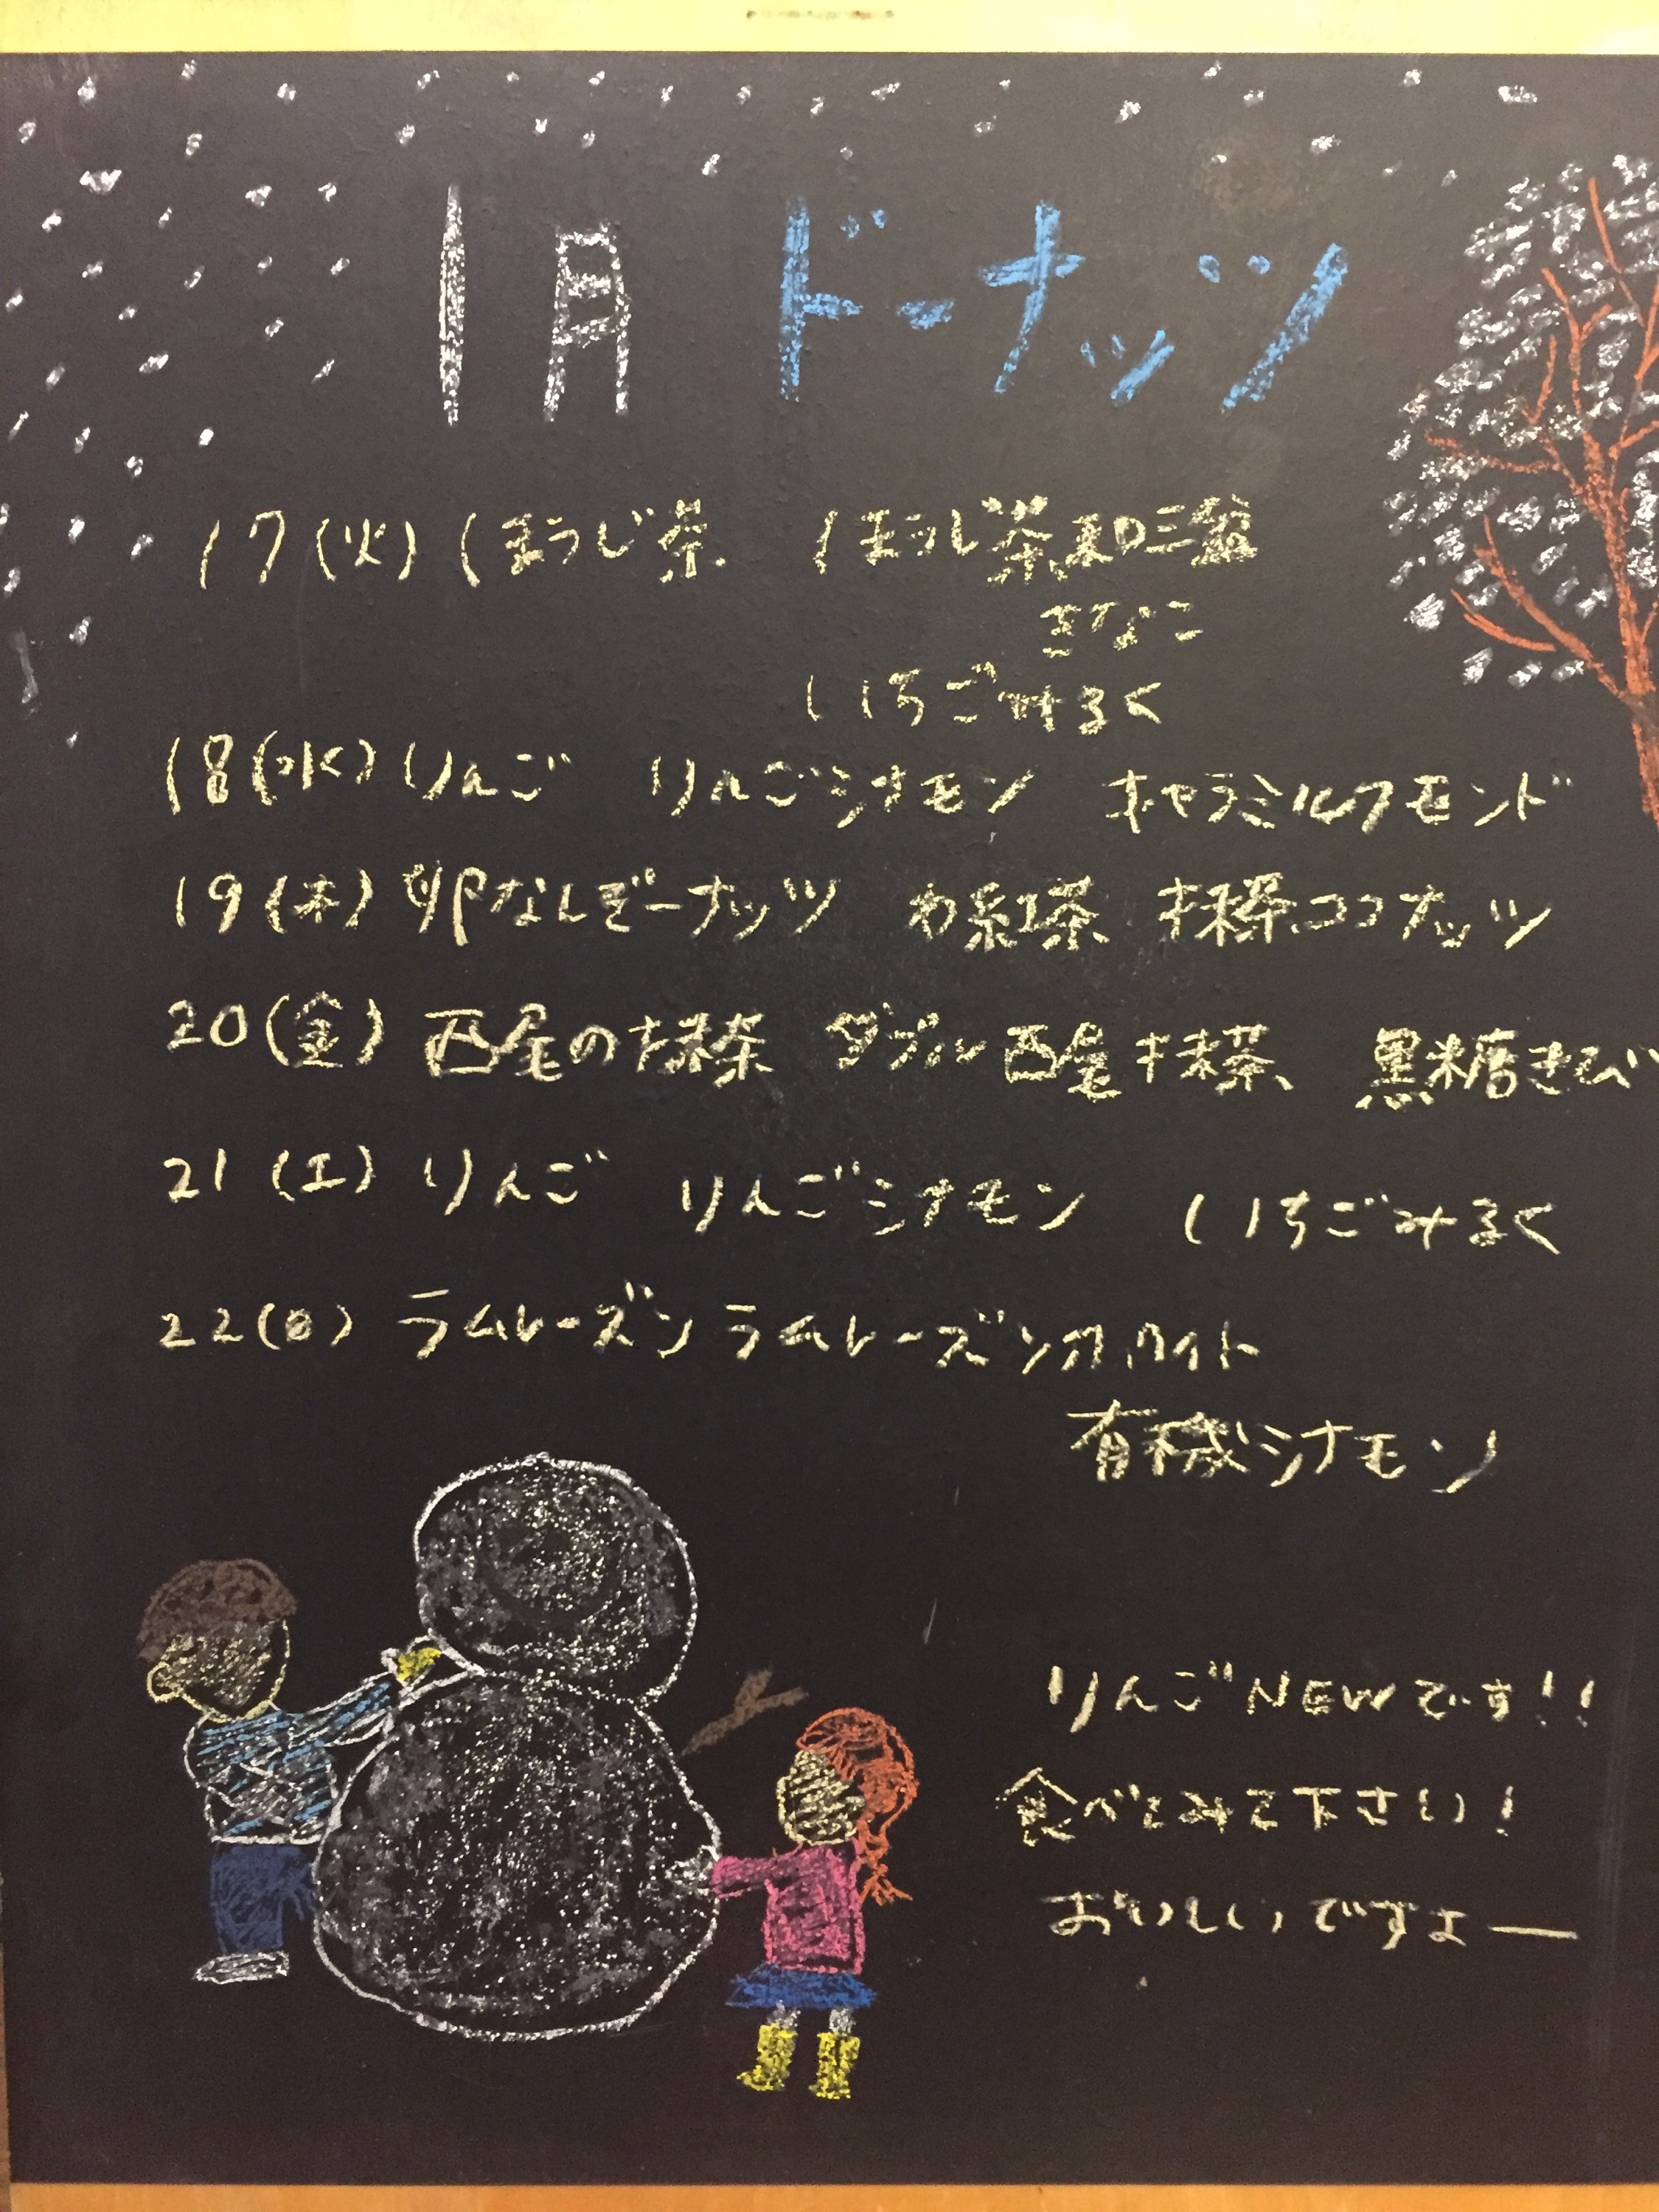 1月 ドーナツツ
17(火) ほうじ茶 ほうじ茶和三盆
きなこ
いちごみるく
18(水) りんご りんごシナモン キャラミルアモンド
19(木) 卵なしどーナッツ わ紅茶 抹茶ココナッツ
20(金) 西尾の抹茶 ダブル西尾抹茶 黒糖きび
21(土) りんご りんごシナモン いちごみるく
22(日) ラムレーズン ラムレーズンホワイト
有機シナモン
りんごNEWです!!
食べてみて下さい!
おいしいですよー